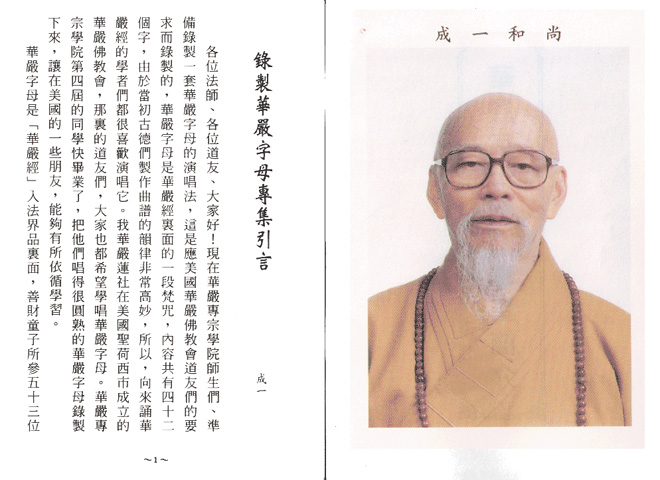 成一和尚
錄製華嚴字母專集引言
成一
各位法師、各位道友、大家好！現在華嚴專宗學院師生們、準
備錄製一套華嚴字母的演唱法，這是應美國華嚴佛教會道友們的要
求而錄製的，華嚴字母是華嚴經裏面的一段梵咒，內容共有四十二
個字，由於當初古德們製作曲譜的韻律非常高妙，所以，向來誦華
嚴經的學者們都很喜歡演唱它。我華嚴蓮社在美國聖荷西市成立的
華嚴佛教會，那裏的道友們，大家也都希望學唱華嚴字母。華嚴專
宗學院第四屆的同學快畢業了，把他們唱得很圓熟的華嚴字母錄製
下來，讓在美國的一些朋友，能夠有所依循學習。
華嚴字母是「華嚴經」入法界品裏面，善財童子所參五十三位
～1～